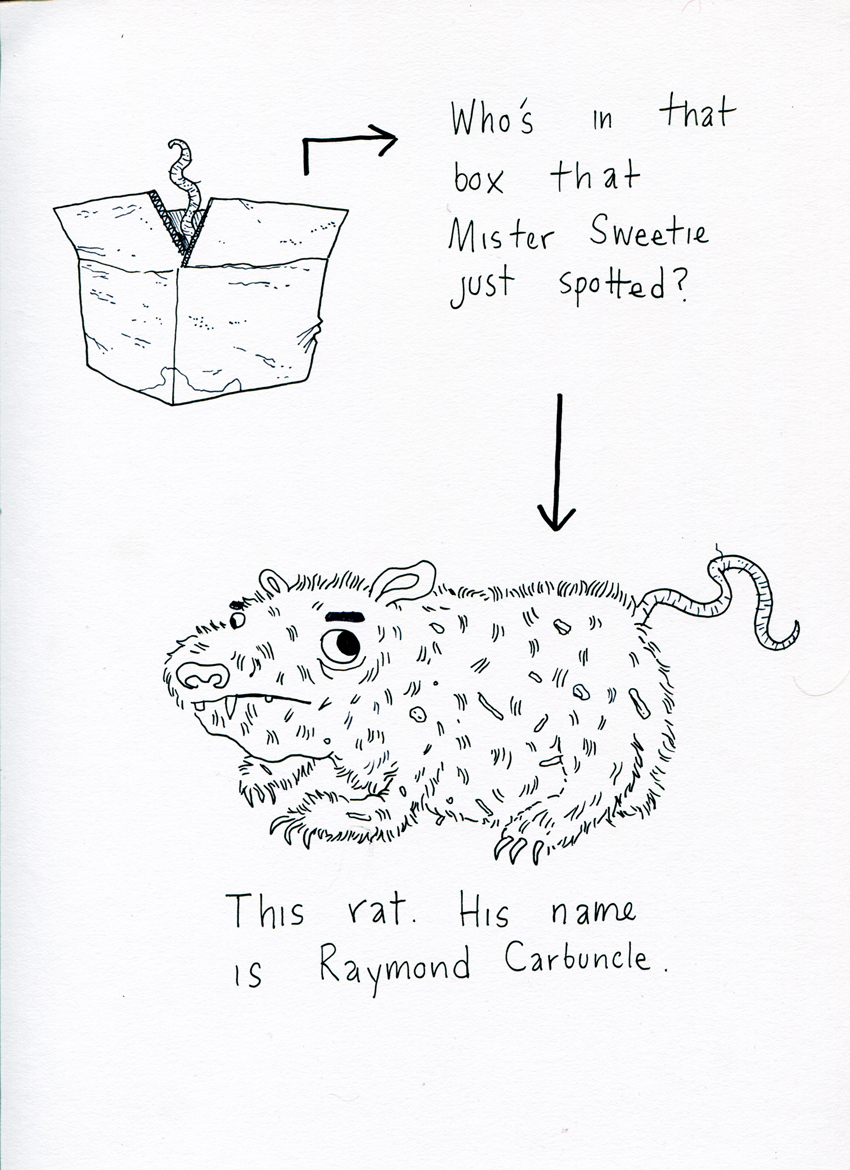 Who's in that
box that
Mister Sweetie
just spotted?
This rat. His name
is Raymond Carbuncle.